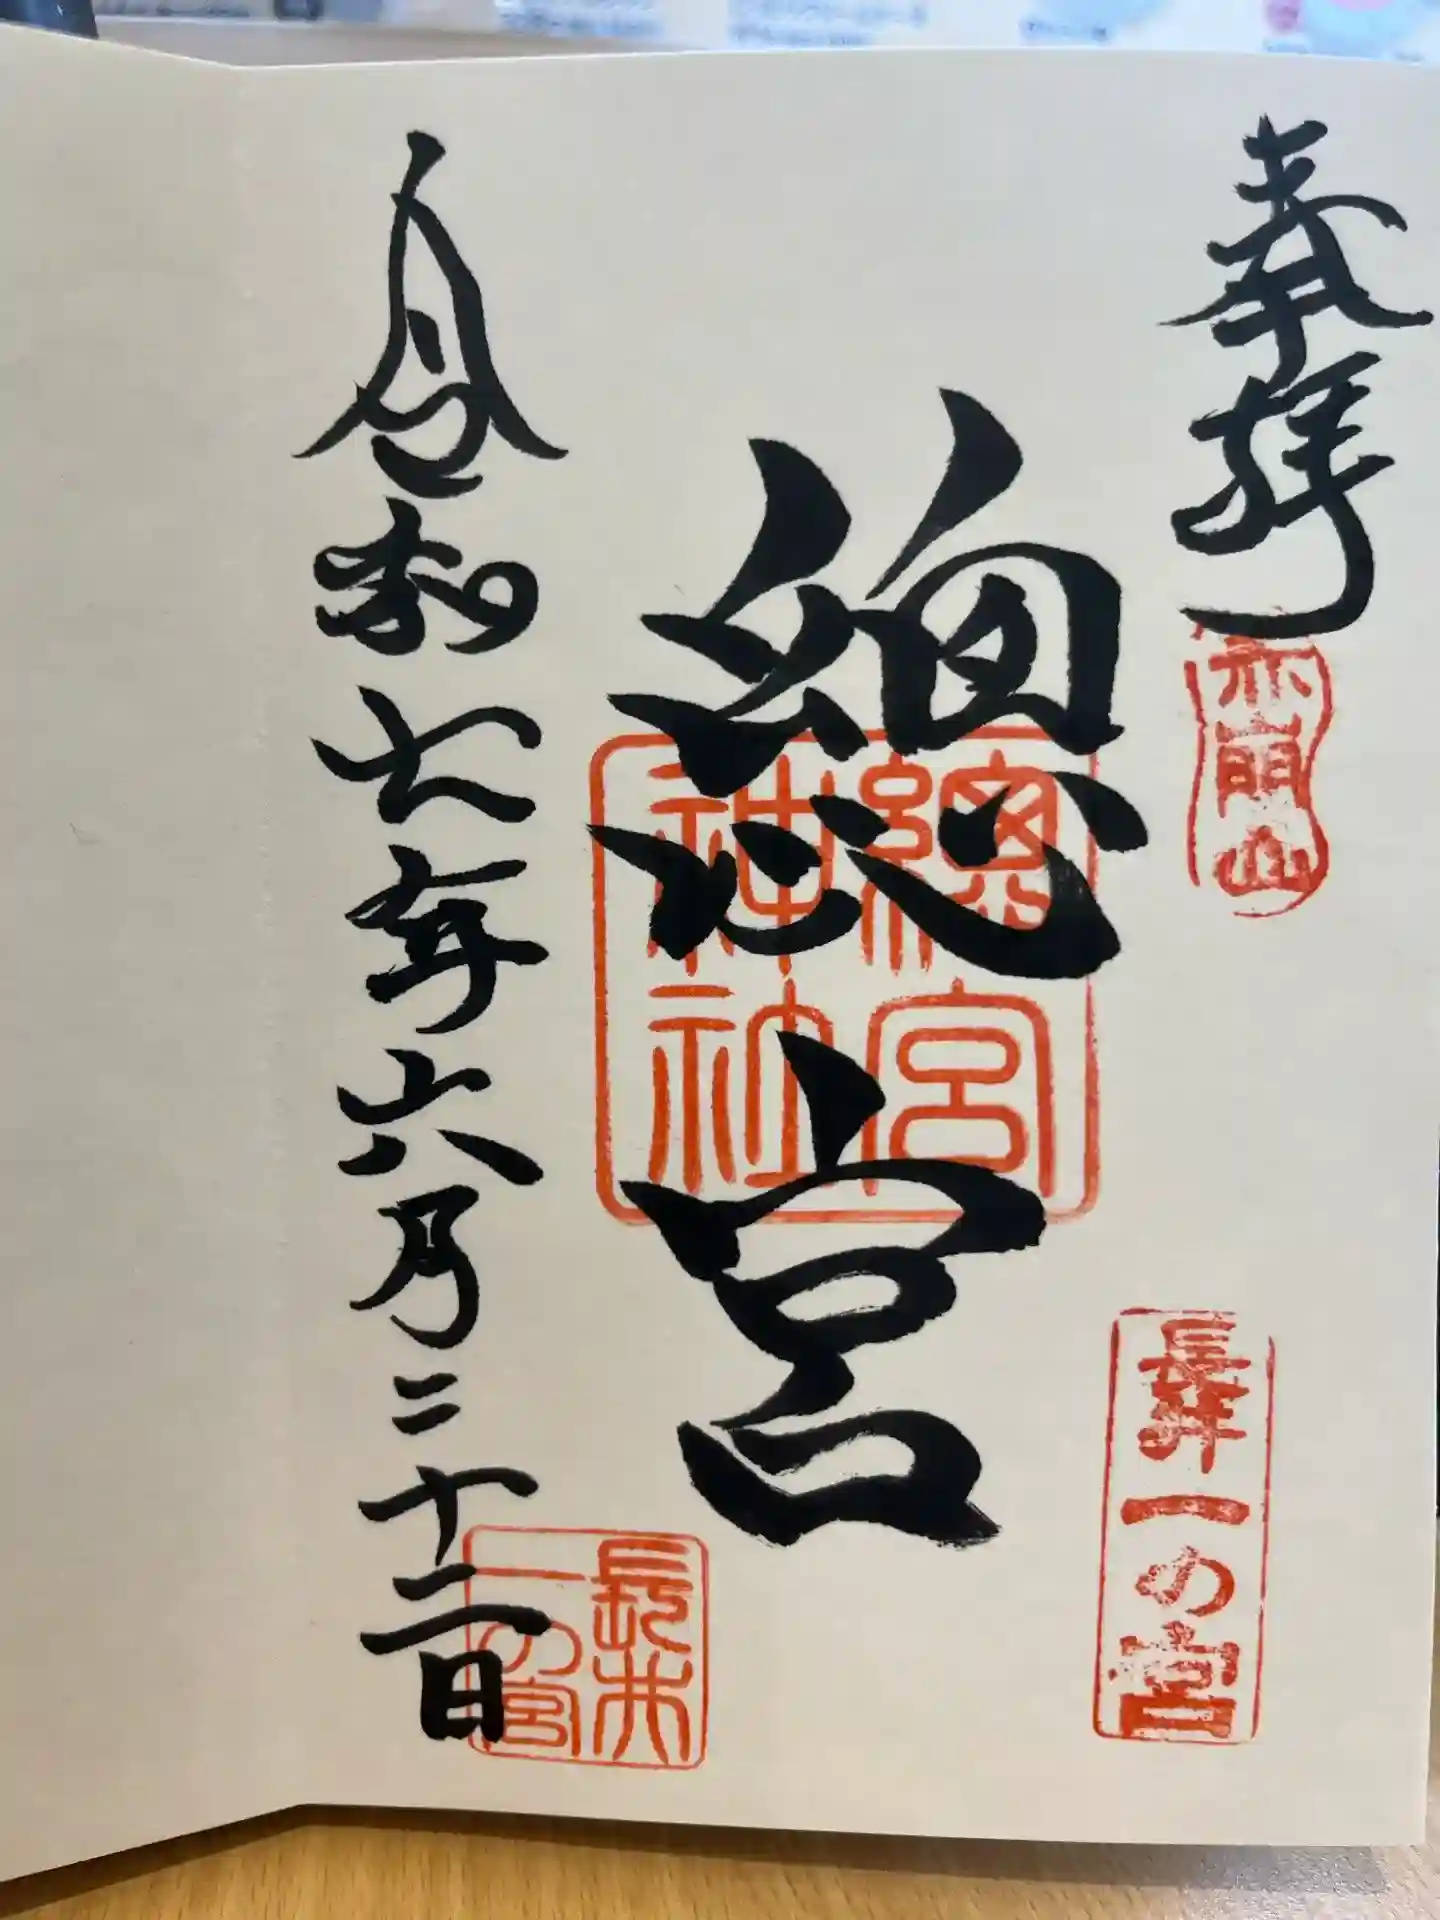 奉拝
赤崩山
長井一の宮
總宮
總宮神社
令和七年六月二十二日
長井一の宮